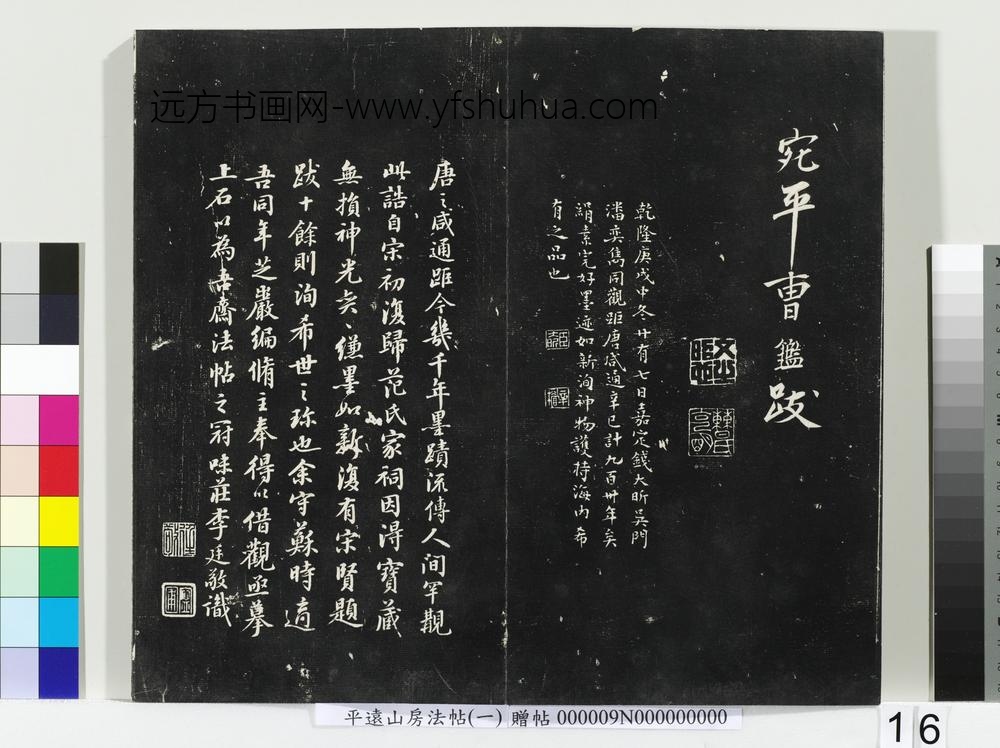 远方书画网-www.yfshuhua.com
宛平曹鑑跋
乾隆庚戌中冬廿有七日嘉定錢大昕吳門
潘奕雋同觀距唐咸通辛巳計九百卅年矣
絹素完好墨迹如新洵神物護持海內希
有之品也
唐之咸通距今幾千年墨蹟流傳人間罕覯
此誥自宋初復歸范氏家祠因得寶藏
無損神光奕奕縑墨如新復有宋賢題
跋十餘則洵希世之珎也余守蘇時適
吾同年芝巖編脩主奉得以借觀亟摹
上石以為吾齋法帖之冠味莊李廷敬識
平遠山房法帖(一) 贈帖 000009N000000000
16